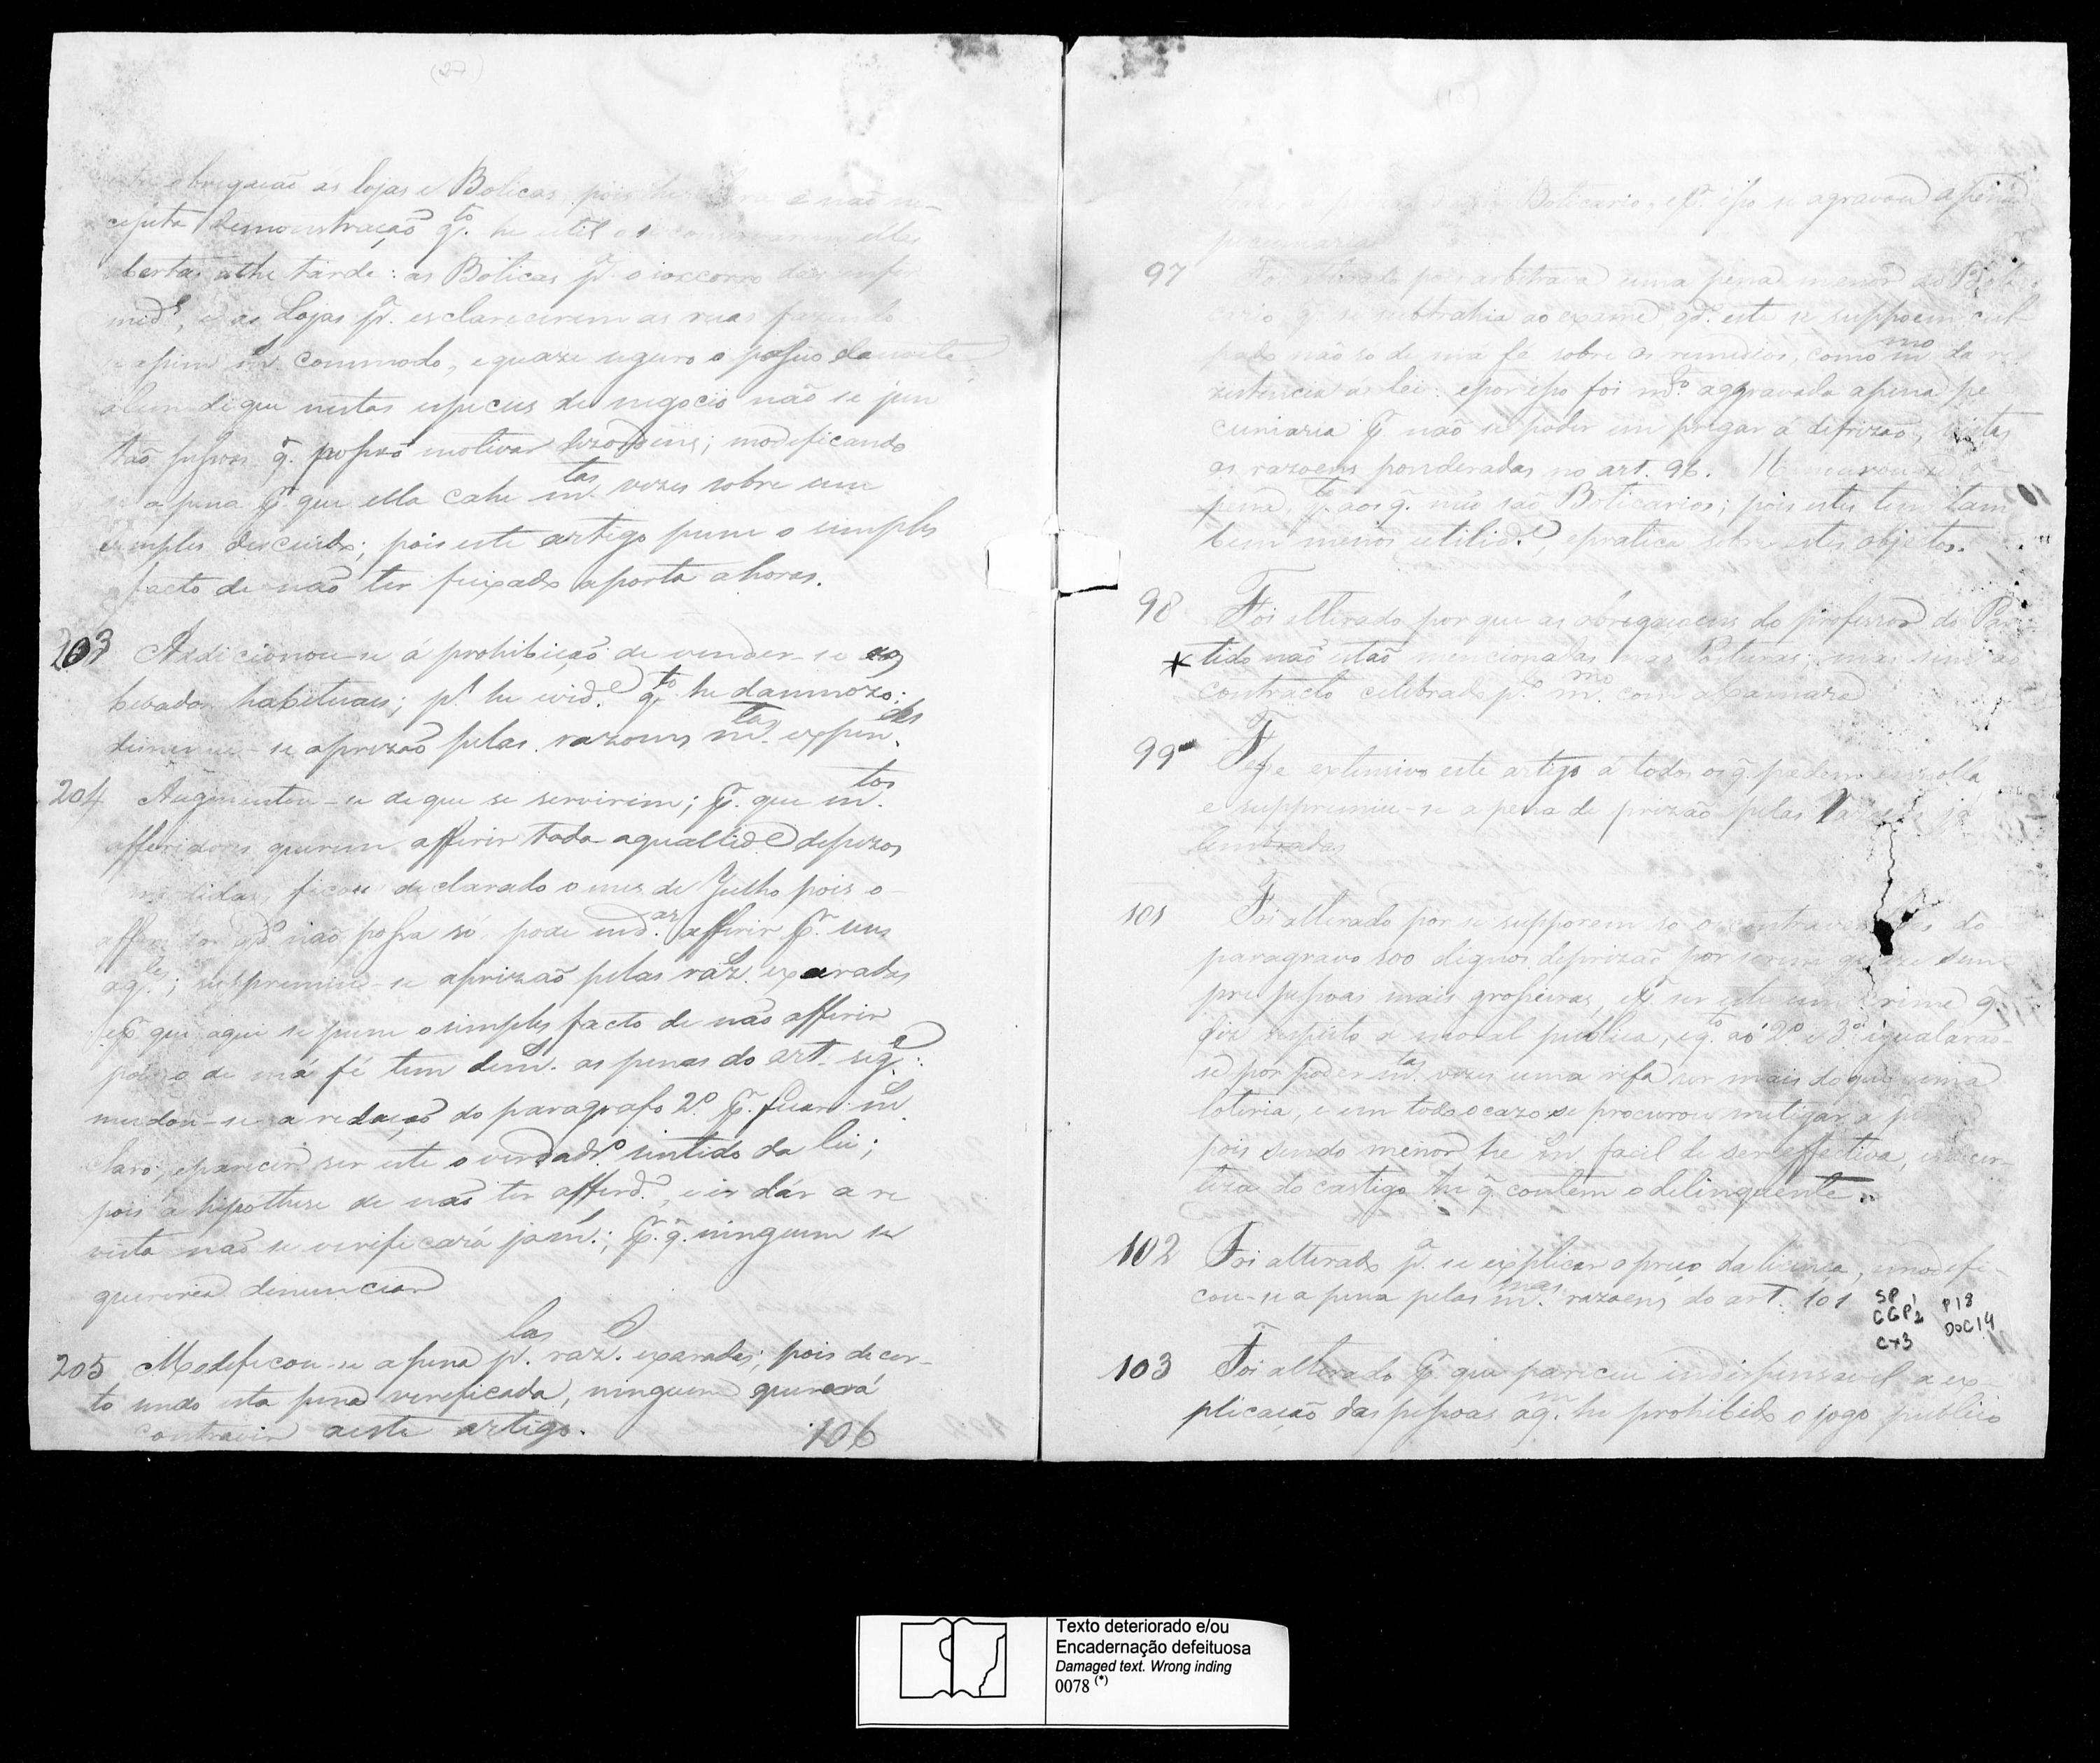 (27)
obrigação ás lojas e Boticas pois he não ne-
cessita demonstração q.to he util o conservarem ellas
abertas athe tarde: as Boticas p.a o soccorro das enfer
mid.s, e as Lojas p.a esclarecerem as ruas fazendo
assim m.s commodo, e quaze seguro o passeio da noite
alem de que nestas especies de negocio não se jun
tão pessoas q. possão motivar dezordens; modificando
se a pena p.r que ella cahe m.tas vezes sobre um
simples descuido; pois este artigo pune o simples
facto de não ter feixado a porta a horas.
203 Addicionou-se á prohibição de vender-se
bebados habituaes; p.r he evid.e q.to he damnozo;
diminuiu-se a prizão pelas razoens m.tas expen.das
204 Augmentou-se de que se servirem; p.r que m.tos
afferidores querem afferir toda a qualid.e de pezos
e medidas, ficou declarado o mes de Julho pois o
afferidor q.do não possa só pode mand.ar afferir p.r um
aq.le; suppremiu-se a prizão pelas raz.s exaradas
e p.r que aqui se pune o simples facto de não afferir
pois o de má fé tem dem.s as penas do art. seg.e:
mudou-se a redação do paragrafo 2.o p.r ficar m.s
claro, e parecer ser este o verdad.o sentido da lei;
pois a hipothese de não ter afferid.o, e ir dár a re
vista não se verificará jam.s; p.r q. ninguem se
quereria denunciar
205 Modeficou-se a pena p.las raz.s exaradas; pois de cer-
to sendo esta pena vereficada, ninguem quererá
contravir a este artigo.
106
Boticario, e p.r isso se agravou a pena
pecuniaria
97 Foi alterado pois arbitrava uma pena menor ao Boti
cario q. se subtrahia ao exame, q.do este se suppoem cul
pado não só de má fe sobre os remedios, como m.mo da re
zistencia ás lei: e por isso foi m.o aggravada a pena pe
cuniaria p.r não se poder em pregar á de prizão, vistas
as razoens ponderadas no art. 96.
pena, aos q. não são Boticarios; pois estes tem tam
bem menos utilid.e, e pratica sobre estes objectos.
98 Foi alterado por que as obrigaçoens do professor do Par
tido não estão mencionadas nas Posturas; mas sim no
contracto celebrado p.o m.mo com a Camara
99 Fesse extensivo este artigo á todos os q. pedem esmolla,
e suppremiu-se a pena de prizão pelas razoens já
lembradas
101 Foi alterado por se supporem só os contraventores do
paragravo 100 dignos de prizão por serem quaze sem
pre pessoas mais grosseiras, e p.r ser este um crime q.
diz respeito a moral publica, e q.to ao 2.o e 3.o igualarão-
se por poder m.tas vezes uma rifa ser mais do que uma
loteria, e em todo o cazo se procurou mitigar a pena
pois sendo menor he m.s facil de ser effectiva, e a cer-
teza do castigo he q. contem o delinquente.
102 Foi alterado p.a se explicar o preço da licença, e modefi-
cou-se a pena pelas m.mas razoens do art. 101
SP1
CGP2
Cx3
P18
DOC14
103 Foi alterado p.r que pareceu indispensavel a ex-
plicação das pessoas a q.m he prohibido o jogo publico
Texto deteriorado e/ou
Encadernação defeituosa
Damaged text. Wrong inding
0078 (*)